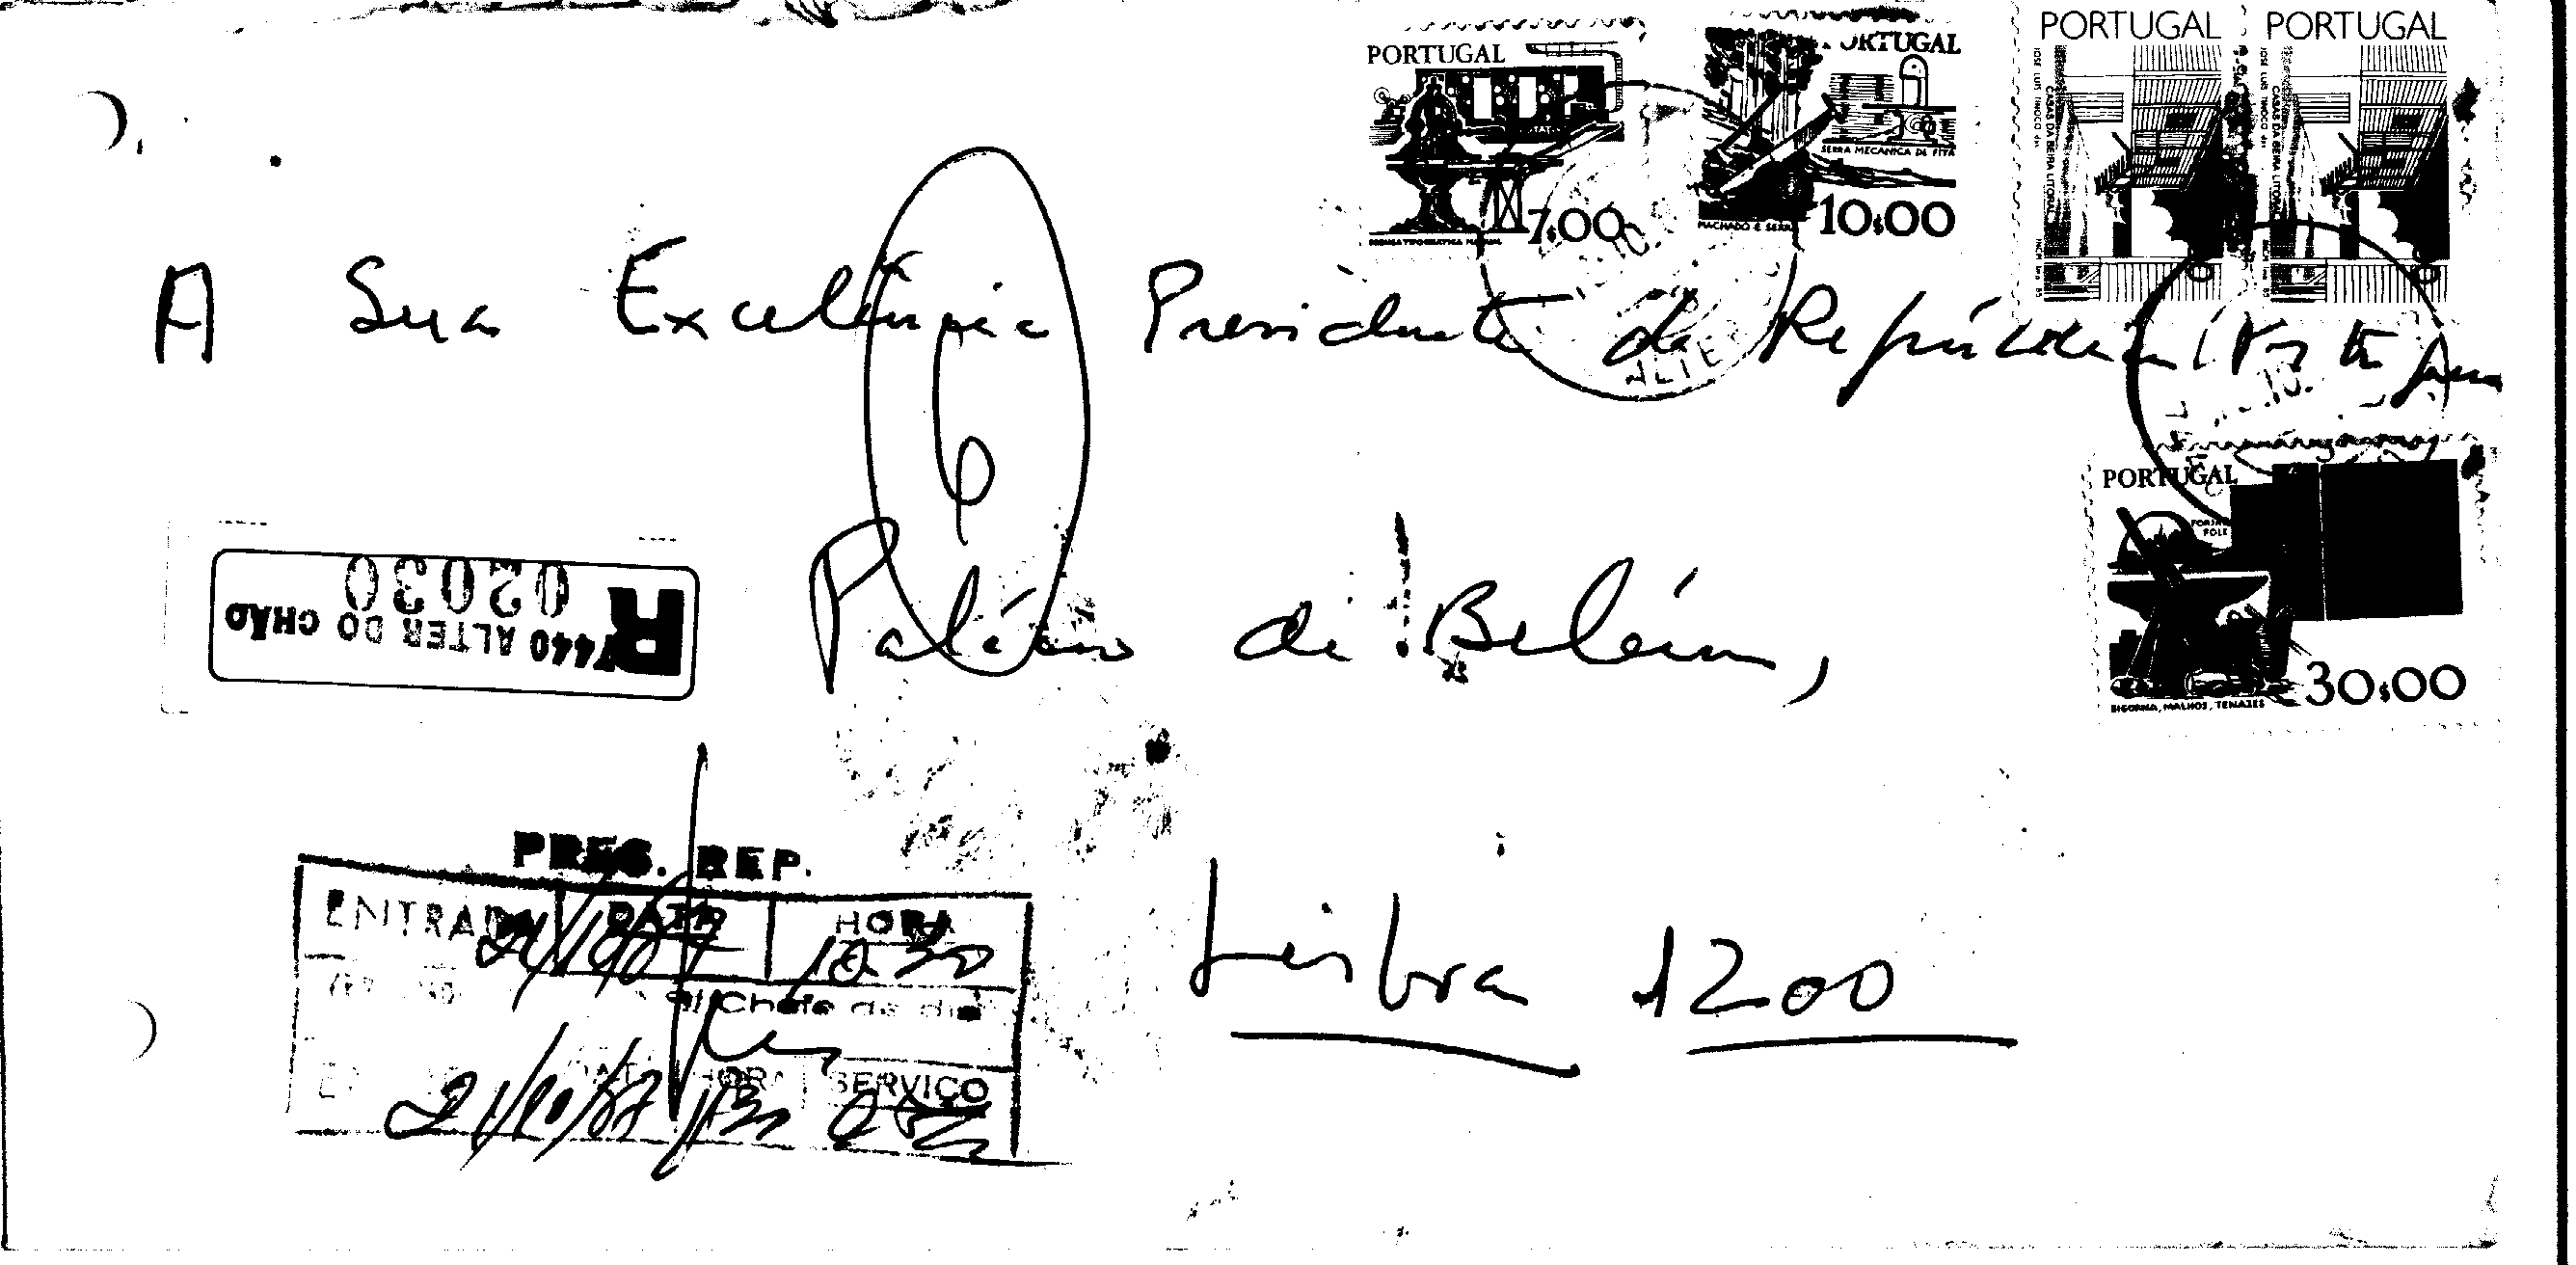 PORTUGAL
7$00
PORTUGAL
SERRA MECANICA DE FITA
MACHADO E SERRA
10$00
PORTUGAL PORTUGAL
JOSÉ LUIS TINOCO
CASAS DA BEIRA LITORAL
JOSÉ LUIS TINOCO
CASAS DA BEIRA LITORAL
A Sua Excelência Presidente da República
ALTER
PORTUGAL
BIGORNA, MALHOS, TENAZES
30$00
R
02030
7440 ALTER DO CHÃO
Palácio de Belém,
PRES. REP.
ENTRADA DATA HORA
21/10/87 10.30
Chefe de dia
HORA SERVIÇO
21/10/87
Lisboa 1200